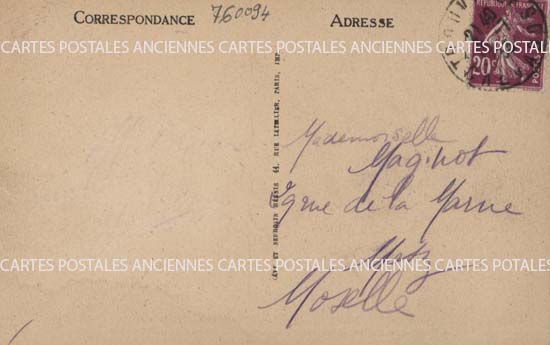 CORRESPONDANCE
760094
ADRESSE
RÉPUBLIQUE FRANÇAISE
20c
POSTES
CARTES POSTALES ANCIENNES CARTES POSTALES ANCIENNES CARTES POSTALES
LÉVY ET NEURDEIN RÉUNIS 44, RUE LETELLIER, PARIS, IMP.
Mademoiselle
Maginot
rue de la Marne
Metz
Moselle
CARTES POSTALES ANCIENNES CARTES POSTALES ANCIENNES CARTES POSTALES